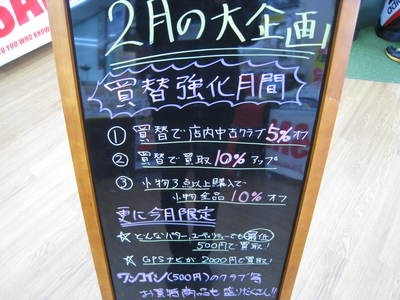 2月の大企画
買替強化月間
① 買替で店内中古クラブ5%オフ
② 買替で買取10%アップ
③ 小物3点以上購入で
小物全品10%オフ
更に今月限定
☆ どんなパター、ユーティリティーでも最低
500円で買取!
☆ GPSナビが2000円で買取!
ワンコイン(500円)のクラブ等
お買得商品も盛りだくさん!!
TO YOU WHO KNOW